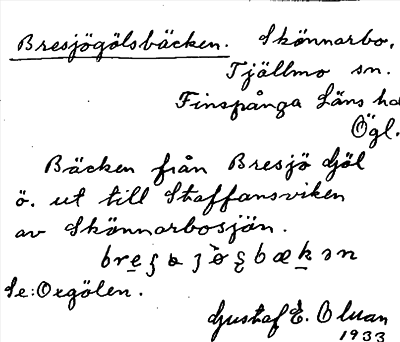 Bresjögölsbäcken. Skönnarbo,
Tjällmo sn.
Finspånga Läns hd
Ögl.
Bäcken från Bresjö Göl
ö. ut till Staffansviken
av Skönnarbosjön.
Se: Oxgölen.
Gustaf E.
1933